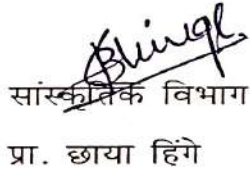 सांस्कृतिक विभाग
प्रा. छाया हिंगे